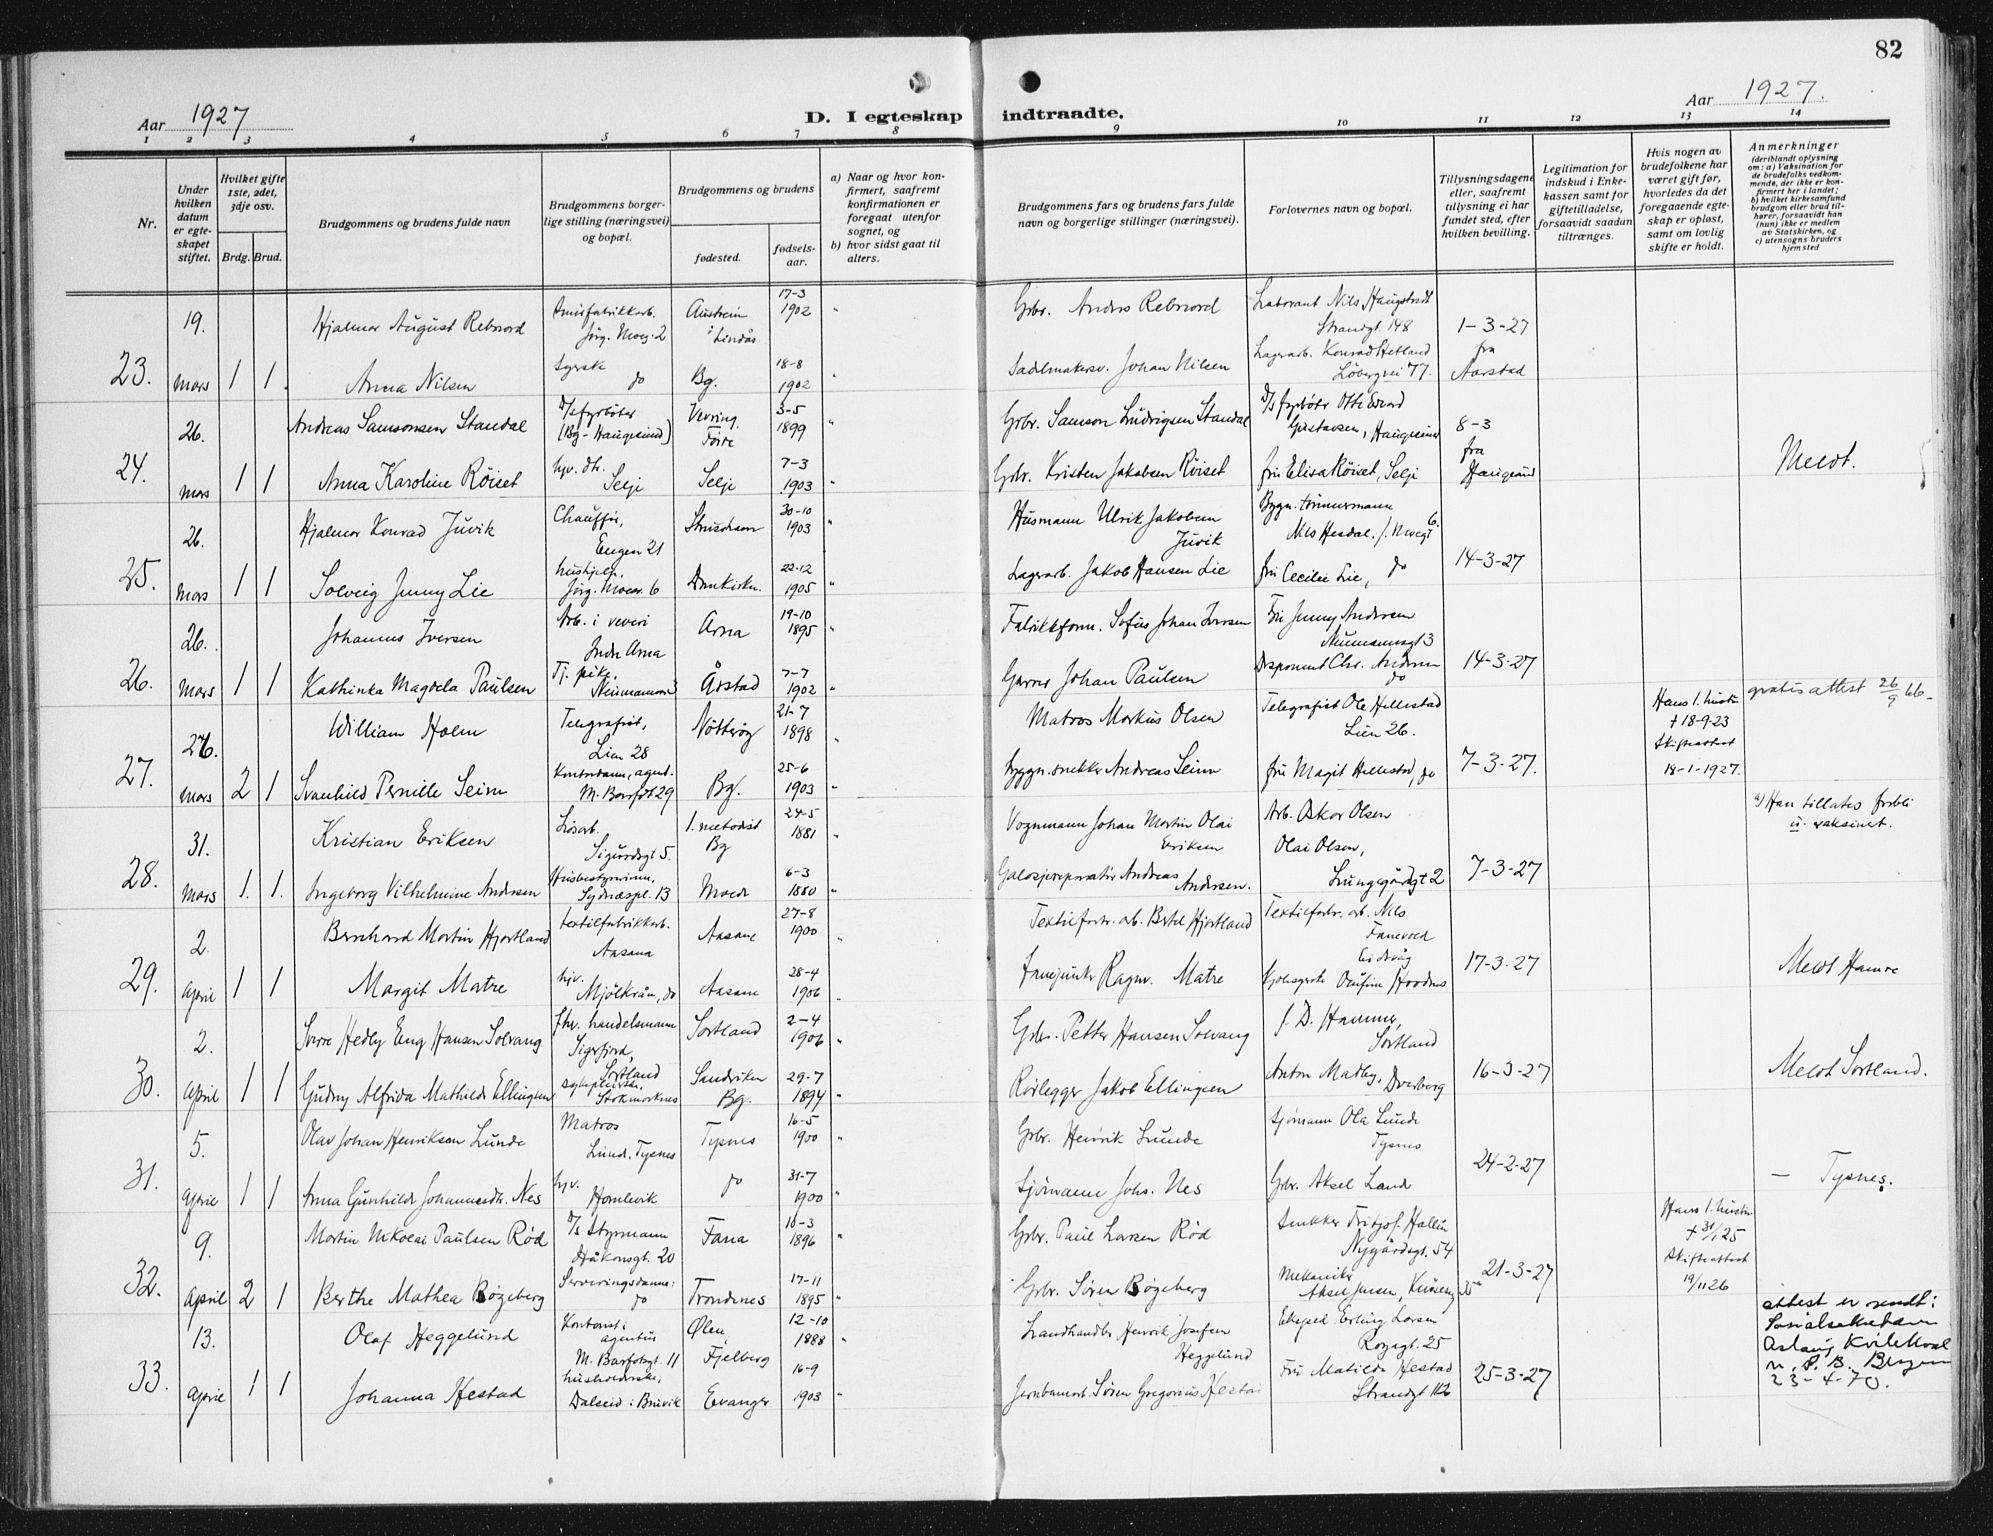 82
Aar 1927
D. I egteskap indtraadte.
Aar 1927.
1 2 3 4 5 6 7 8 9 10 11 12 13 14
Nr.
Under hvilken datum er egteskapet stiftet.
Hvilket gifte 1ste, 2det, 3dje osv.
Brdg. Brud.
Brudgommens og brudens fulde navn
Brudgommens borgerlige stilling (næringsvei) og bopæl.
Brudgommens og brudens
fødested.
fødselsaar.
a) Naar og hvor konfirmert, saafremt konfirmationen er foregaat utenfor sognet, og
b) hvor sidst gaat til alters.
Brudgommens fars og brudens fars fulde navn og borgerlige stillinger (næringsvei).
Forlovernes navn og bopæl.
Tillysningsdagene eller, saafremt tillysning ei har fundet sted, efter hvilken bevilling.
Legitimation for indskud i Enkekassen samt for giftetilladelse, forsaavidt saadan tiltrænges.
Hvis nogen av brudefolkene har været gift før, hvorledes da det foregaaende egteskap er opløst, samt om lovlig skifte er holdt.
Anmerkninger
(deriblandt oplysning om: a) Vaksination for de brudefolks vedkommende, der ikke er konfirmert her i landet; b) hvilket kirkesamfund brudgom eller brud tilhører, forsaavidt han (hun) ikke er medlem av Statskirken, og c) utensogns bruders hjemsted
23. 19. Mars 1 1
Hjalmar August Rebnord
Jørg. Moeg. 2
Austrein i Lindås
17-3 1902
Grbr. Anders Rebnord
Laborant Nils Haugstvedt
Strandgt. 148
1-3-27
fra
Aarstad
Anna Nilsen
Syerske do
Bg.
18-8 1902
Sadelmakersv. Johan Nilsen
Lagerarb. Konrad Hetland
Løbergvei 77.
24. 26. Mars 1 1
Andreas Samsonsen Standal
D/s fyrbøter
(Bg - Haugesund)
Vevring, Førde
3-5 1899
Grbr. Samson Ludvigsen Standal
D/s fyrbøter Otto Edvard
Gustavsen, Haugesund
8-3
fra
Haugesund
Meldt.
Anna Karoline Røiset
hjv. dtr. Selje
Selje
7-3 1903
Grbr. Kristen Jakobsen Røiset
fru Elisa Røiset, Selje
25. 26. Mars 1 1
Hjalmar Konrad Juvik
Chauffør,
Engen 21
Strusshamn
30-10 1903
Husmann Ulrik Jakobsen
Juvik
Bygn. tømmermann
Nils Hesdal, J. Moegt 6.
14-3-27
Solveig Jenny Lie
hushjelp,
Jørg. Moesgt. 6
Domkirken.
22-12 1905
Lagerarb. Jakob Hansen Lie
fru Cecilie Lie, do
26. 26. Mars 1 1
Johannes Iversen
Arb. i veveri
Indre Arna
Arna
19-10 1895
Fabrikkform. Sofus Johan Iversen
Fru Jenny Andersen
Neumannsgt 3
14-3-27
Kathinka Magdela Paulsen
Tj. pike,
Neumannsgt 3
Årstad
7-7 1902
Garver Johan Paulsen
Disponent Chr. Andersen
do
27. 26. Mars 2 1
William Holm
Telegrafist,
Lien 28
Nøtterøy
21-7 1898
Matros Markus Olsen
Telegrafist Ole Hellestad
Lien 26.
7-3-27.
Hans 1. hustru
† 18-9-23
Skifteattest
18-1-1927.
gratis attest 26/9 66-
Svanhild Pernille Seim
Kontordame, agent.
M. Barfotsgt 29
Bg.
25-6 1903
Byggn.snekker Andreas Seim
fru Magit Hellestad, do
28. 31. Mars 1. 1.
Kristian Eriksen
Løsarb.
Sigurdsgt 5.
1. metodist
Bg
24-5 1881
Vognmann Johan Martin Olai
Eriksen
Arb. Oskar Olsen
7-3-27
a) Han tillates forbli
u. vaksinert.
Ingeborg Vilhelmine Andersen
Husbestyrerinne,
Sydnæspl. 13
Molde
6-3 1880
Galosjereparatør Andreas
Andersen.
Olai Olsen,
Lungegårdsgt 2
29. 2. April 1 1
Bernhard Martin Hjortland
textilfabrikkarb.
Aasane
Aasane
27-8 1900
Textilfabr. arb. Bertel Hjortland
Textilfabr. arb. Nils
Fanevold
Eidsvåg
17-3-27
Meldt Hamre
Margit Matre
hjv.
Mjølkråen, do
Aasane
28-4 1906
Ragnv. Matre
30. 2. April 1 1
Sverre Hedly Eng Hansen Solvang
fhv. handelsmann
Sigerfjord,
Sortland
Sortland
2-4 1906
Grbr. Petter Hansen Solvang
J. D. Hammer,
Sortland
16-3-27
Meldt Sortland.
Gudny Alfrida Mathilde Ellingsen
sykepleierske,
Stokmarknes
Sandviken
Bg.
29-7 1894
Rørlegger Jakob Ellingsen
Anton Madby, Dverberg
31. 5. April 1 1
Olav Johan Henriksen Lunde
Matros
Lund, Tysnes
Tysnes
16-5 1900
Grbr. Henrik Lunde
Sjømann Ola Lunde
Tysnes
24-2-27
— Tysnes.
Anna Gunhilde Johannesdtr. Nes
hjv.
Homlevik
do
31-7 1900
Sjømann Johs. Nes
Grbr. Aksel Land
32. 9. April 2 1
Martin Nikolai Paulsen Rød
D/s Styrmann
Håkonsgt. 20
Fana
10-3 1896
Grbr. Paul Larsen Rød
Snekker Fritjof Hallén
Nygårdsgt. 54
21-3-27
Hans 1. hustru
† 31/1 25
Skifteattest
19/11 26
Berthe Mathea Bøgeberg
Serveringsdame:
do
Trondenes
17-11 1895
Grbr. Søren Bøgeberg
Mekaniker
Aksel Jensen,
33. 13. April 1 1
Olaf Heggelund
Kontorist i
agentur
M. Barfotsgt. 11
Ølen,
Fjelberg
12-10 1888
Landhandler Henrik Josefsen
Heggelund
Eksped. Erling Larsen
Rosesgt. 25
25-3-27
attest er sendt:
Sosialsekretæren
Aslaug
n. P. B. Bergen
23-4-70.
Johanna Hestad
husholderske,
Dalseid i Bruvik
Evanger
16-9 1903
Jernbanearb. Søren Gregorius Hestad
Fru Matilde Hestad
Strandgt 112